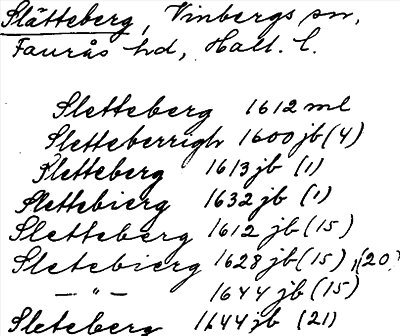 Slätteberg, Vinbergs sn,
Faurås hd, Hall. l.
Sletteberg 1612 ml
Sletteberrigh 1600 jb (4)
Sletteberg 1613 jb (1)
Slettebierg 1632 jb (1)
Sletteberg 1612 jb (15)
Sletebierg 1628 jb (15), (20)
— " — 1644 jb (15)
Sleteberg 1644 jb (21)